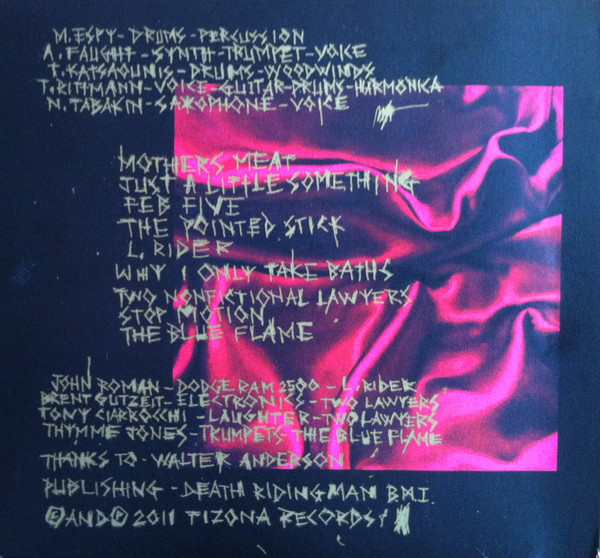 M. ESPY - DRUMS - PERCUSSION
A. FAUGHT - SYNTH - TRUMPET - VOICE
T. KATSAOUNIS - DRUMS - WOODWINDS
T. RITHMANN - VOICE - GUITAR - DRUMS - HARMONICA
N. TABAKIN - SAXOPHONE - VOICE
MOTHERS MEAT
JUST A LITTLE SOMETHING
FEB FIVE
THE POINTED STICK
L. RIDER
WHY I ONLY TAKE BATHS
TWO NONFICTIONAL LAWYERS
STOP MOTION
THE BLUE FLAME
JOHN ROMAN - DODGE RAM 2500 - L. RIDER
BRENT GUTZEIT - ELECTRONICS - TWO LAWYERS
TONY CIARROCCHI - LAUGHTER - TWO LAWYERS
THYMME JONES - TRUMPETS - THE BLUE FLAME
THANKS TO - WALTER ANDERSON
PUBLISHING - DEATH RIDING MAN B.M.I.
© AND ℗ 2011 TIZONA RECORDS